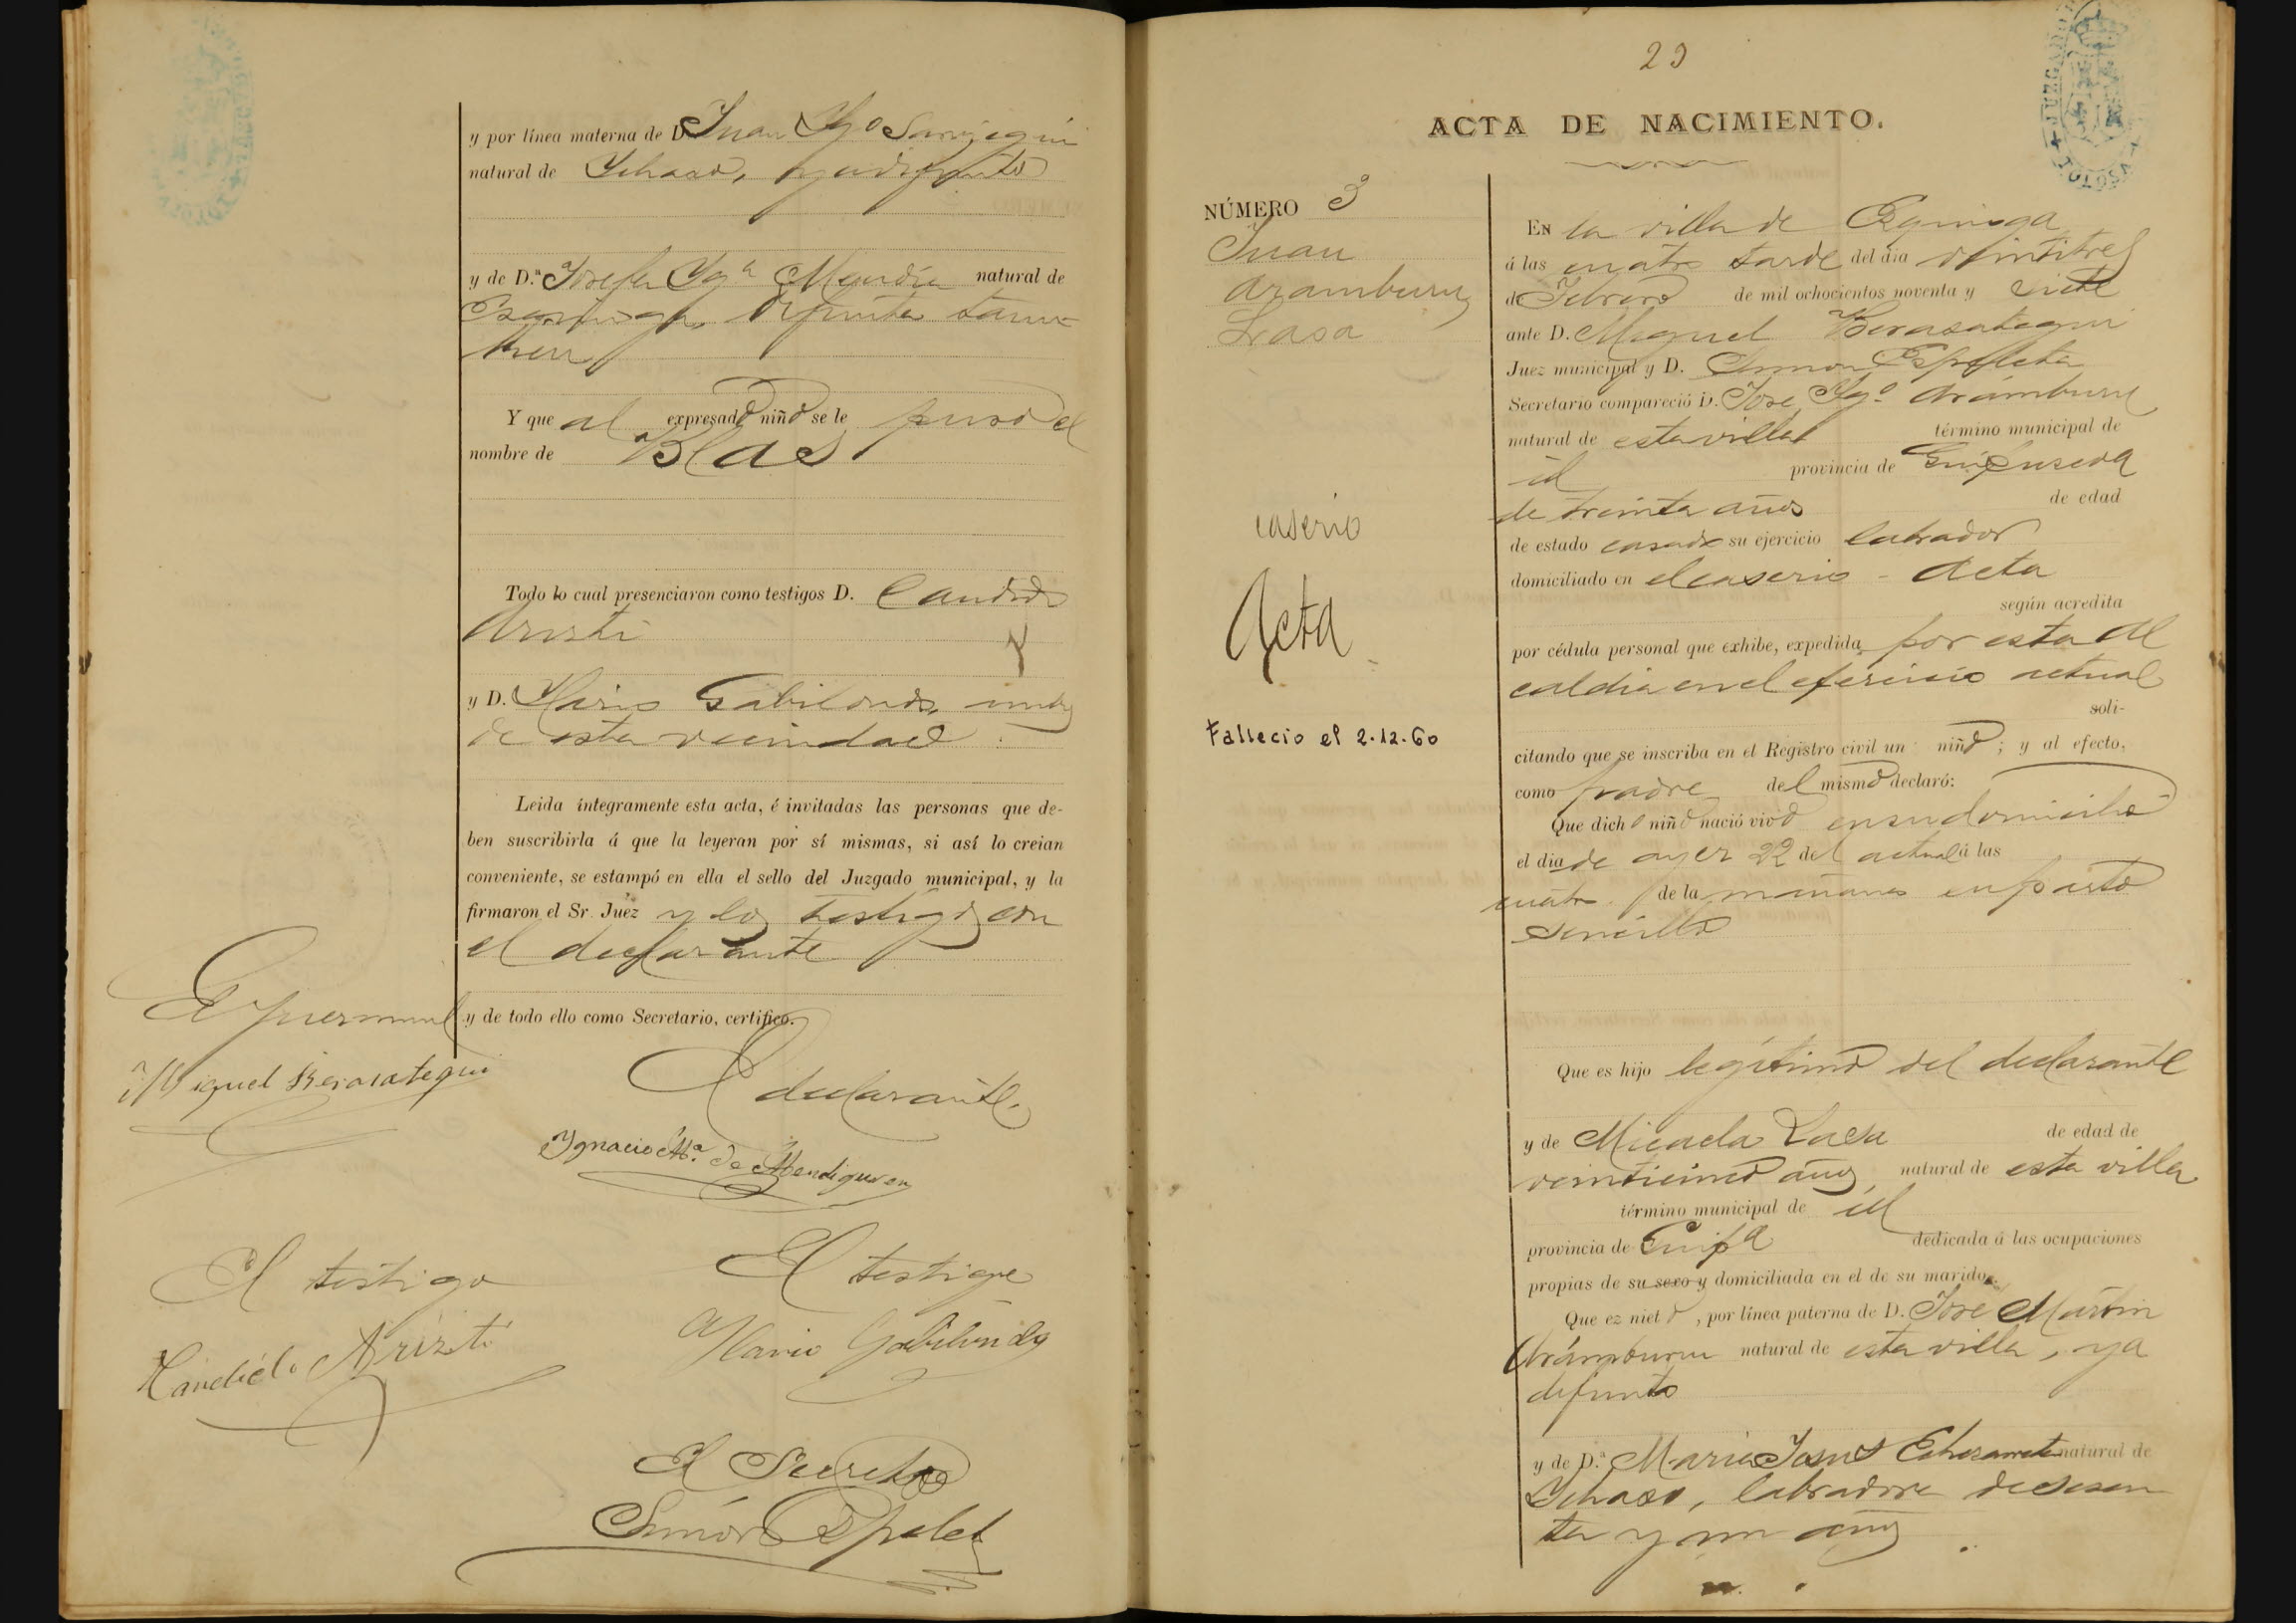 y por línea materna de D. Juan Ygº Sarriegui
natural de Ychaso, ya difunto
y de D.ª Josefa Ygª Mendia natural de
Ezquioga, difunta tam-
bien
Y que al expresado niño se le puso el
nombre de Blas
Todo lo cual presenciaron como testigos D. Candido
Aristi
y D. Ylario Gabilondo,
de esta vecindad.
Leida íntegramente esta acta, é invitadas las personas que de-
ben suscribirla á que la leyeran por sí mismas, si así lo creian
conveniente, se estampó en ella el sello del Juzgado municipal, y la
firmaron el Sr. Juez y los testigos con
el declarante
y de todo ello como Secretario, certifico.
Miguel Berasategui
El declarante,
Ygnacio Mª. de Mendiguren
El testigo
Candido Arizti
El testigo
Ylario Gabilondo
El Secretº
Simón Espeleta
23
ACTA DE NACIMIENTO.
JUZGADO
TOLOSA
NÚMERO 3
Juan
Aramburu
Lasa
caserio
Acta
Fallecio el 2.12.60
En la villa de Ezquioga
á las cuatro tarde del dia veintitres
de Febrero de mil ochocientos noventa y siete
ante D. Miguel Berasategui
Juez municipal y D. Simon Espeleta
Secretario compareció D. Jose Ygº. Arámburu
natural de esta villa término municipal de
id provincia de Guipuzcoa
de treinta años de edad
de estado casado su ejercicio labrador
domiciliado en el caserio - Acta
según acredita
por cédula personal que exhibe, expedida por esta Al
caldia en el ejercicio actual
soli-
citando que se inscriba en el Registro civil un niño; y al efecto,
como padre del mismo declaró:
Que dicho niño nació vivo en su domicilio
el dia de ayer 22 del actual á las
cuatro de la mañana en parto
sencillo
Que es hijo legítimo del declarante
y de Micaela Lasa de edad de
veinticinco años natural de esta villa
término municipal de id
provincia de Guipª dedicada á las ocupaciones
propias de su sexo y domiciliada en el de su marido.
Que ez nieto, por línea paterna de D. José Martin
Arámburu natural de esta villa, ya
difunto
y de D.ª Maria Jesus Echezarreta natural de
Ychaso, labradora de sesen
ta y un años